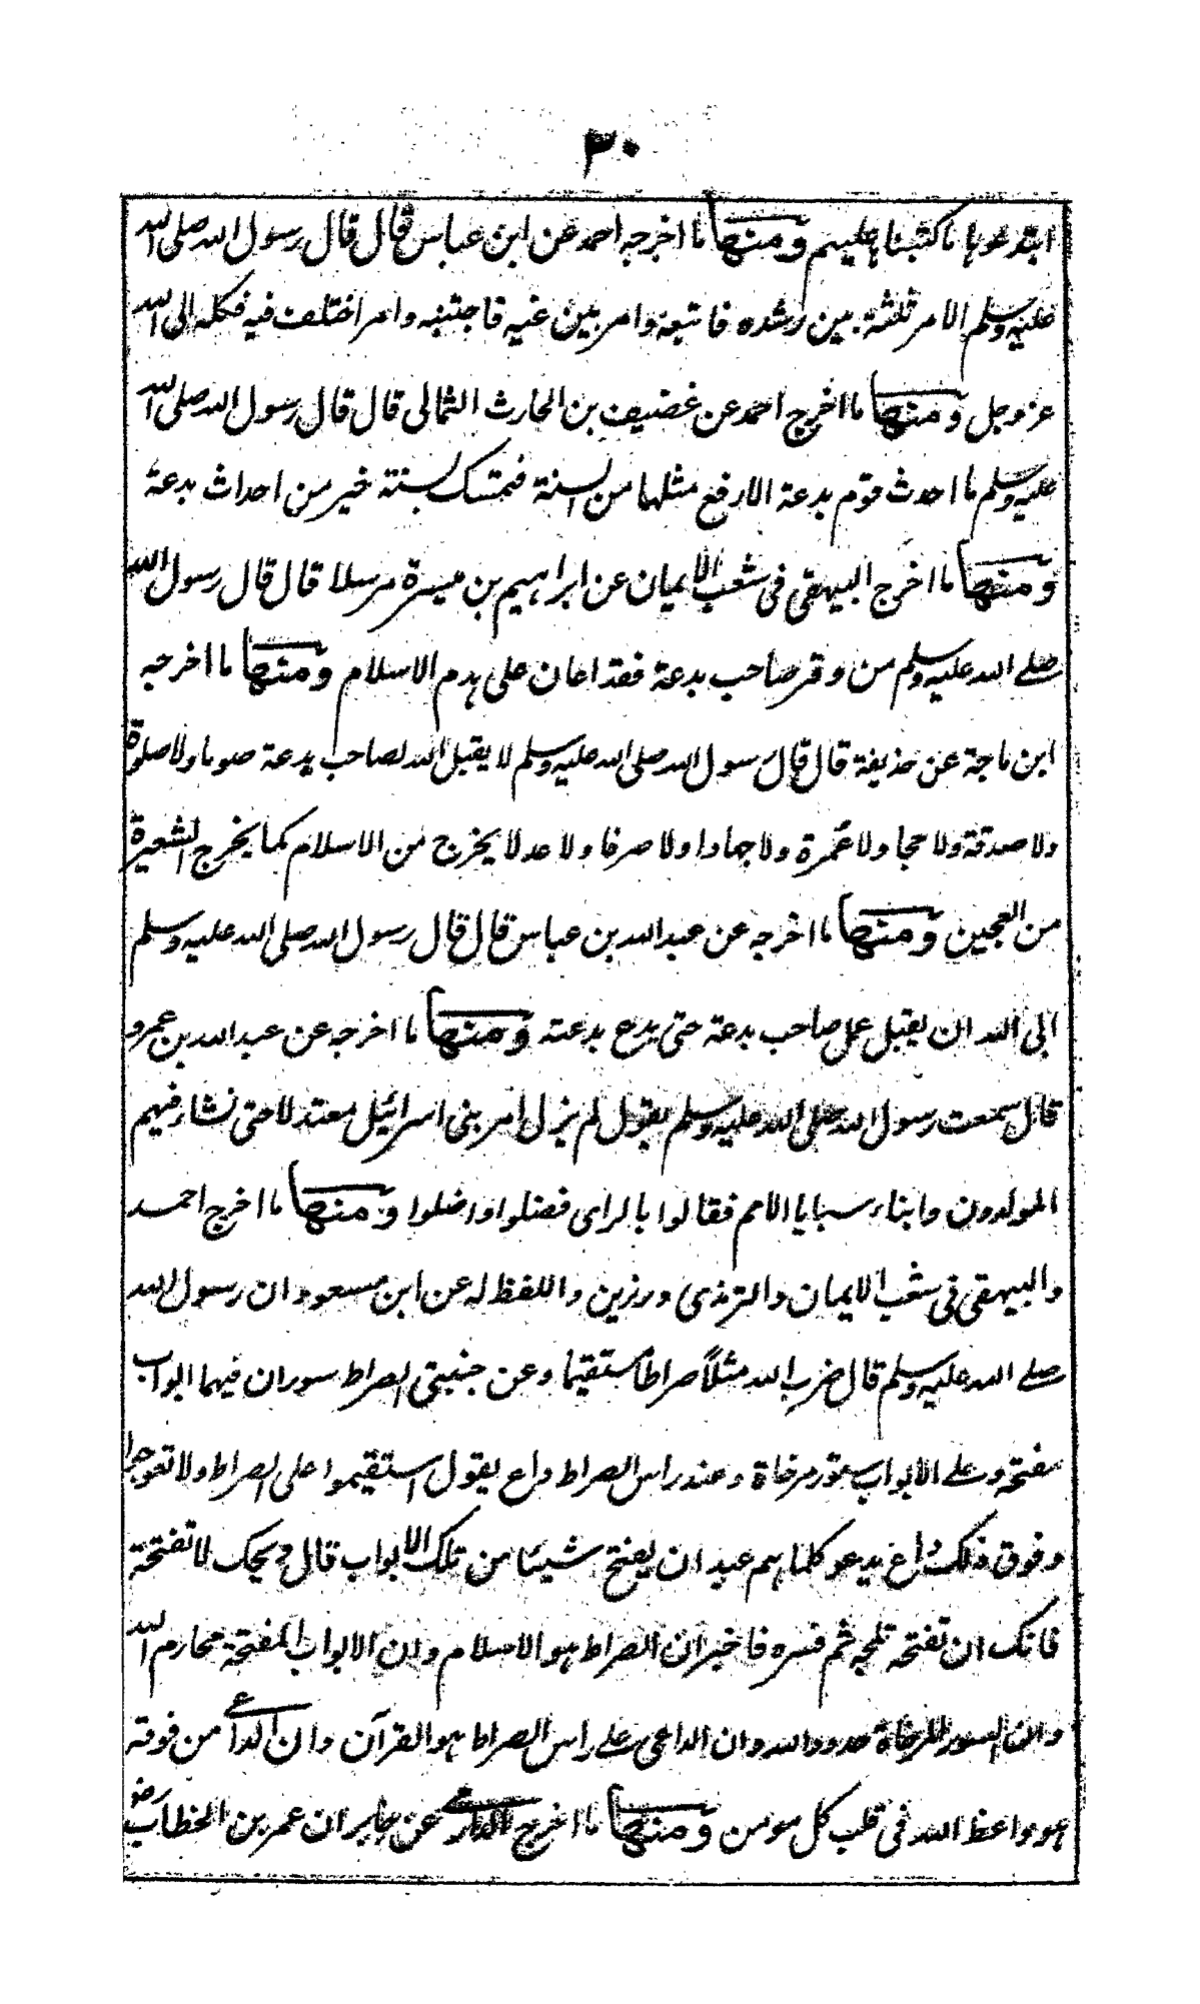 ٣٠
ابتدعوہا ما کتبناہا علیہم ومنہا ما اخرجہ احمد عن ابن عباس قال قال رسول اللہ صلی اللہ
علیہ وسلم الامر ثلثة بین رشدہ فاتبعہ وامر بین غیہ فاجتنبہ وامر اختلف فیہ فکلہ الی اللہ
عز وجل ومنہا ما اخرج احمد عن غضیف بن الحارث الثمالی قال قال رسول اللہ صلی اللہ
علیہ وسلم ما احدث قوم بدعة الا رفع مثلہا من السنة فتمسک بسنة خیر من احداث بدعة
ومنہا ما اخرج البیہقی فی شعب الایمان عن ابراہیم بن میسرة مرسلا قال قال رسول اللہ
صلے اللہ علیہ وسلم من وقر صاحب بدعة فقد اعان علی ہدم الاسلام ومنہا ما اخرجہ
ابن ماجة عن حذیفة قال قال رسول اللہ صلی اللہ علیہ وسلم لا یقبل اللہ لصاحب بدعة صوما ولا صلوة
ولا صدقة ولا حجا ولا عمرة ولا جہادا ولا صرفا ولا عدلا یخرج من الاسلام کما یخرج الشعیرة
من العجین ومنہا ما اخرجہ عن عبد اللہ بن عباس قال قال رسول اللہ صلی اللہ علیہ وسلم
ابی اللہ ان یقبل عمل صاحب بدعة حتی یدع بدعتہ ومنہا ما اخرجہ عن عبد اللہ بن عمرو
قال سمعت رسول اللہ صلی اللہ علیہ وسلم یقول لم یزل امر بنی اسرائیل معتدلا حتی نشا فیہم
المولدون وابناء سبایا الامم فقالوا بالرای فضلوا واضلوا ومنہا ما اخرج احمد
والبیہقی فی شعب الایمان والترمذی ورزین واللفظ لہ عن ابن مسعود ان رسول اللہ
صلے اللہ علیہ وسلم قال ضرب اللہ مثلاً صراطا مستقیما وعن جنبتی الصراط سوران فیہما ابواب
مفتحة وعلے الابواب ستور مرخاة وعند راس الصراط داع یقول استقیموا علی الصراط ولا تعوجوا
وفوق ذلک داع یدعو کلما ہم عبد ان یفتح شیئا من تلک الابواب قال ویحک لا تفتحہ
فانک ان تفتحہ تلجہ ثم فسرہ فاخبر ان الصراط ہو الاسلام وان الابواب المفتحة محارم اللہ
وان الستور المرخاة حدود اللہ وان الداعی علے راس الصراط ہو القرآن وان الداعی من فوقہ
ہو واعظ اللہ فی قلب کل مومن ومنہا ما اخرج الدارمی عن جابر ان عمر بن الخطاب رض